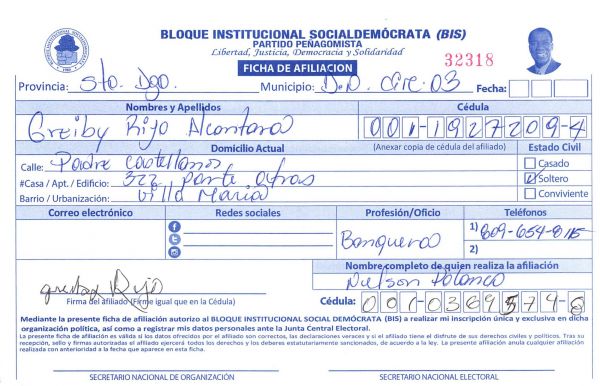 BLOQUE INSTITUCIONAL SOCIALDEMÓCRATA (BIS)
PARTIDO PEÑAGOMISTA
Libertad, Justicia, Democracia y Solidaridad
32318
FICHA DE AFILIACION
Provincia: Sto. Dgo. Municipio: D.N. Circ. 03 Fecha:
Nombres y Apellidos Cédula
Greiby Rijo Alcantara 001-1927209-4
Domicilio Actual (Anexar copia de cédula del afiliado) Estado Civil
Calle: Padre Castellanos Casado
#Casa / Apt. / Edificio: 322 parte atras Soltero
Barrio / Urbanización: Villa Maria Conviviente
Correo electrónico Redes sociales Profesión/Oficio Teléfonos
Banquera 1) 809-654-8115
2)
Nombre completo de quien realiza la afiliación
Nelson Polanco
Rijo
Firma del afiliado (Firme igual que en la Cédula) Cédula: 001-0369574-8
Mediante la presente ficha de afiliación autorizo al BLOQUE INSTITUCIONAL SOCIAL DEMÓCRATA (BIS) a realizar mi inscripción única y exclusiva en dicha
organización política, así como a registrar mis datos personales ante la Junta Central Electoral.
La presente ficha de afiliación es válida si los datos ofrecidos por el afiliado son correctos, las declaraciones veraces y si el titular disfruta de sus derechos civiles y políticos. Tras su
recepción, sello y firmas autorizadas el afiliado ejercerá todos los derechos y los deberes estatutariamente sancionados, de acuerdo a la ley. La presente afiliación anula cualquier afiliación
realizada con anterioridad a la fecha que aparece en esta ficha.
SECRETARIO NACIONAL DE ORGANIZACIÓN SECRETARIO NACIONAL ELECTORAL